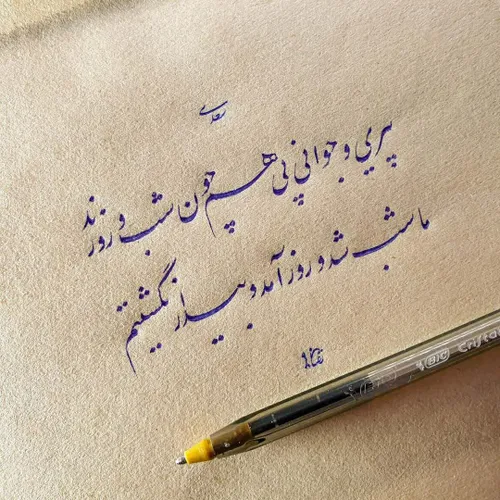 سعدی
پیری و جوانی پی هم چون شب و روزند
ما شب شد و روز آمد و بیدار نگشتیم
BIC Cristal